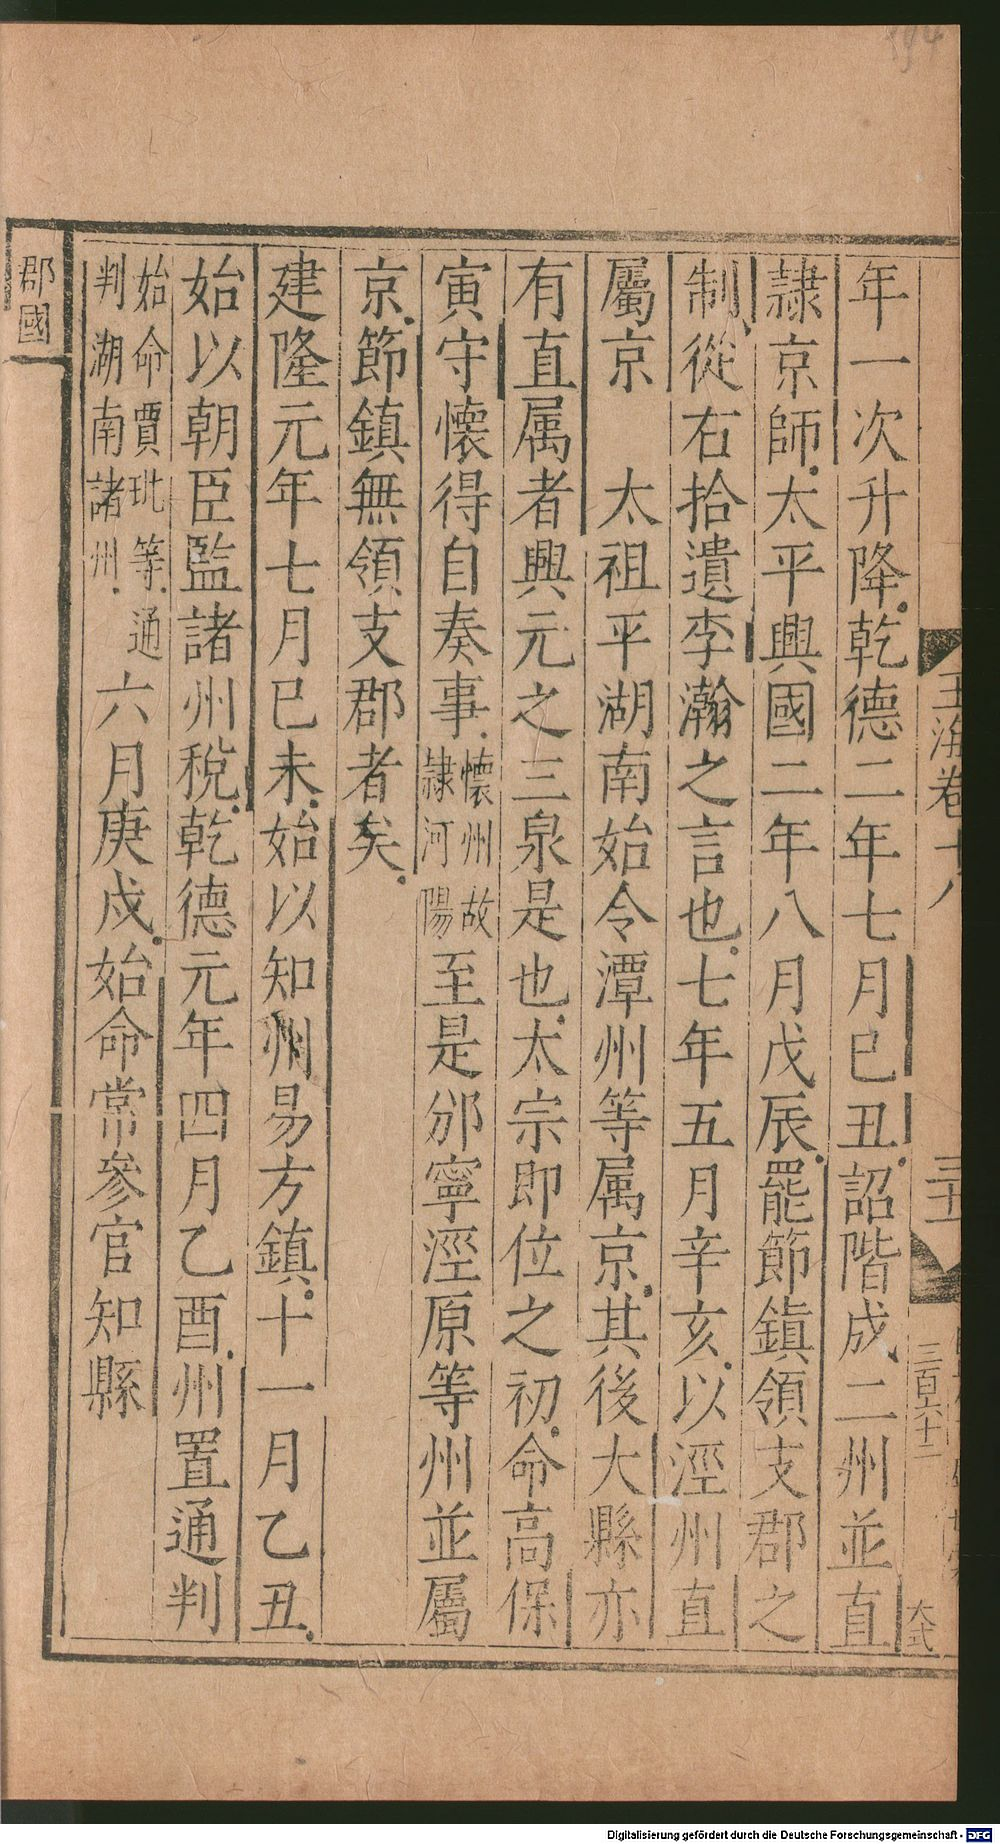 年一次升降乾德二年七月已丑詔階成二州並直
隷京師太平興國二年八月戊辰罷節鎮領支郡之
制從右拾遺李瀚之言也七年五月辛亥以涇州直
屬京　太祖平湖南始令潭州等属京其後大縣亦
有直属者興元之三泉是也太宗即位之初命高保
寅守懷得自奏事懷州故隷河陽至是邠寧涇原等州並屬
京節鎮無領支郡者矣
建隆元年七月已未始以知州易方鎮十一月乙丑
始以朝臣監諸州稅乾德元年四月乙酉州置通判
始命賈玭等通判湖南諸州六月庚戍始命常參官知縣
郡國
玉海卷十八
三十一
三百六十二
大弍
Digitalisierung gefördert durch die Deutsche Forschungsgemeinschaft - DFG